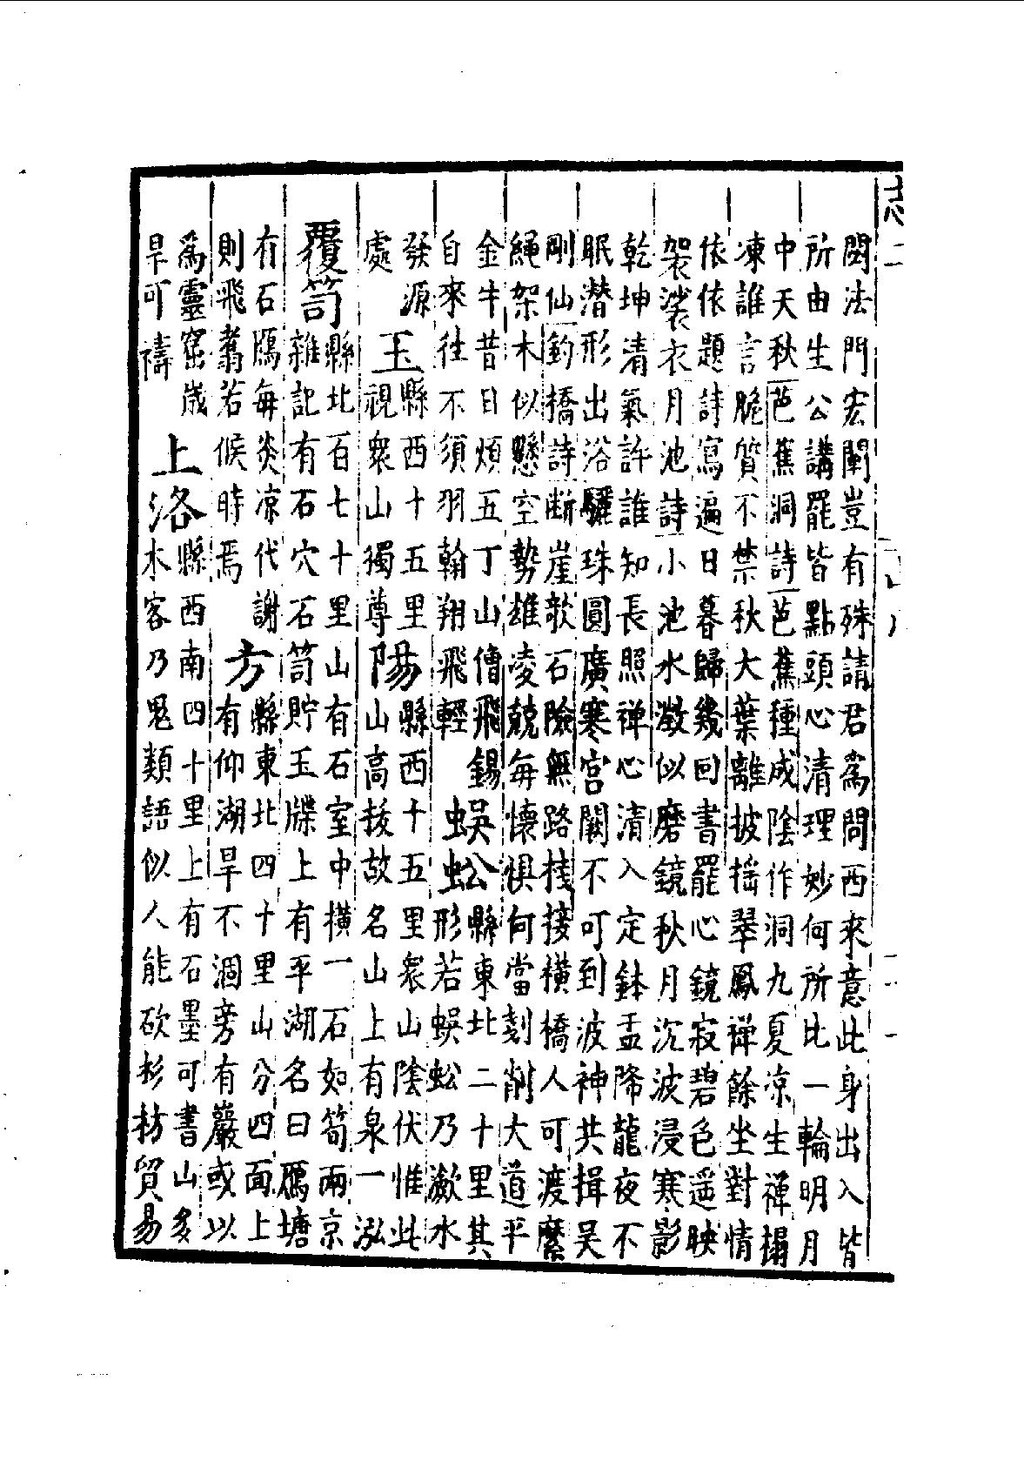 志二
閎法門宏闡豈有殊請君為問西來意此身出入皆
所由生公講罷皆點頭心清理妙何所比一輪明月
中天秋芭蕉洞詩芭蕉種成陰作洞九夏凉生禅榻
凍誰言脆質不禁秋大葉離披摇翠鳳禅餘坐對情
依依題詩寫遍日暮歸幾回書罷心鏡寂碧色遥映
袈裟衣月池詩小池水㵘似磨鏡秋月沉波浸寒影
乾坤清氣許誰知長照禅心清入定鉢盂降龍夜不
眠潜形出浴驪珠圓廣寒宮闕不可到波神共揖吴
剛仙釣橋詩断崖欹石險無路栈接横橋人可渡縻
繩架木似懸空勢雄凌兢每懷惧何當剗削大道平
金牛昔日煩五丁山僧飛錫
自來往不須羽翰翔飛輕
蜈蚣縣東北二十里其
形若蜈蚣乃瀨水
發源
處
玉縣西十五里
視衆山獨尊
陽縣西十五里衆山陰伏惟此
山高拔故名山上有泉一泓
覆笥縣北百七十里山有石室中横一石如筍兩京
雜記有石穴石笥貯玉牒上有平湖名曰鴈塘
有石鴈每炎凉代謝
則飛翥若候時焉
方縣東北四十里山分四面上
有仰湖旱不涸旁有巖或以
為靈窟歲
旱可禱
上洛縣西南四十里上有石墨可書山多
木客乃鬼類語似人能砍杉枋貿易